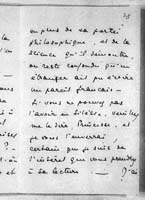 25
en plus de sa portée
philosophique, et de la
science qu'il démontre,
on reste confondu qu'un
étranger ait pu écrire
un pareil français —
Si vous ne pouvez pas
l'avoir en Silésie, veuillez
me le dire Princesse, et
je vous l'enverrai
certain que je suis de
l'intérêt que vous prendrez
à sa lecture — J'ai